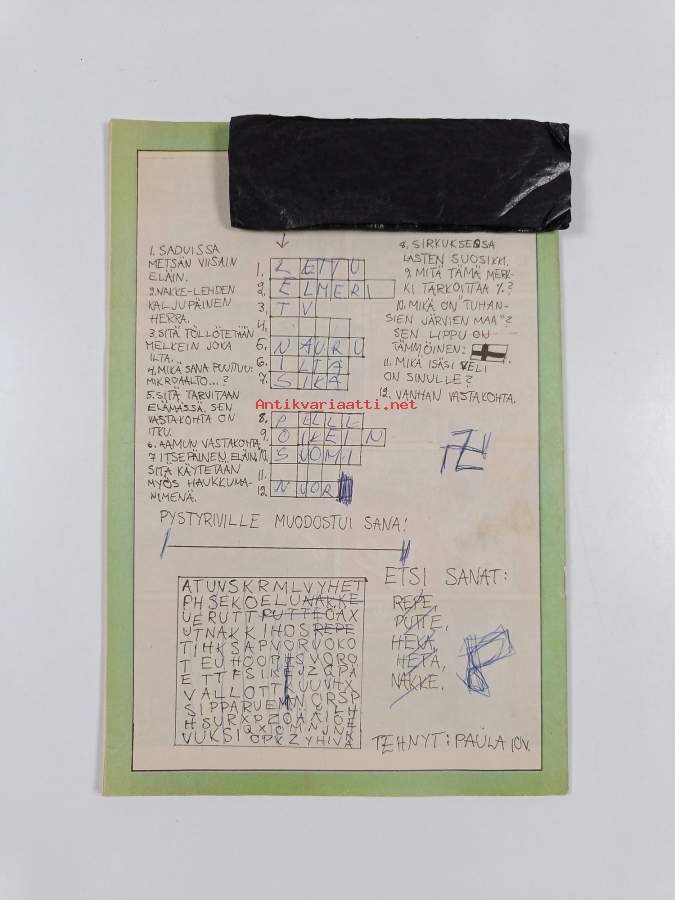 1. SADUISSA
METSÄN VIISAIN
ELÄIN.
2. NAKKE-LEHDEN
KALJUPÄINEN
HERRA.
3. SITÄ TÖLLÖTETÄÄN
MELKEIN JOKA
ILTA.
4. MIKÄ SANA PUUTUU:
MIKROAALTO...?
5. SITÄ TARVITAAN
ELÄMÄSSÄ. SEN
VASTAKOHTA ON
ITKU.
6. AAMUN VASTAKOHTA
7. ITSEPÄINEN ELÄIN
SITÄ KÄYTETÄÄN
MYÖS HAUKKUMA-
NIMENÄ.
1. KETTU
2. ELMERI
3. TV
4.
5. NAURU
6. ILTA
7. SIKA
8. PELLE
9.
10. SUOMI
11.
12. NUORI
8. SIRKUKSESSA
LASTEN SUOSIKKI.
9. MITÄ TÄMÄ MERK-
KI TARKOITTAA %?
10. MIKÄ ON "TUHAN-
SIEN JÄRVIEN MAA"?
SEN LIPPU ON
TÄMMÖINEN:
11. MIKÄ ISÄSI VELI
ON SINULLE?
12. VANHAN VASTAKOHTA.
Antikvariaatti.net
PYSTYRIVILLE MUODOSTUI SANA:
ATUVSKRMLVYHET
PHSEKOELUNAKKE
UERUTTPUTTEOAX
UTNAKKIHOSREPE
TIHKSAPVORVOKO
ETSI SANAT:
REPE,
PUTTE,
HEKA,
HETA,
NAKKE.
TEHNYT: PAULA 10V.